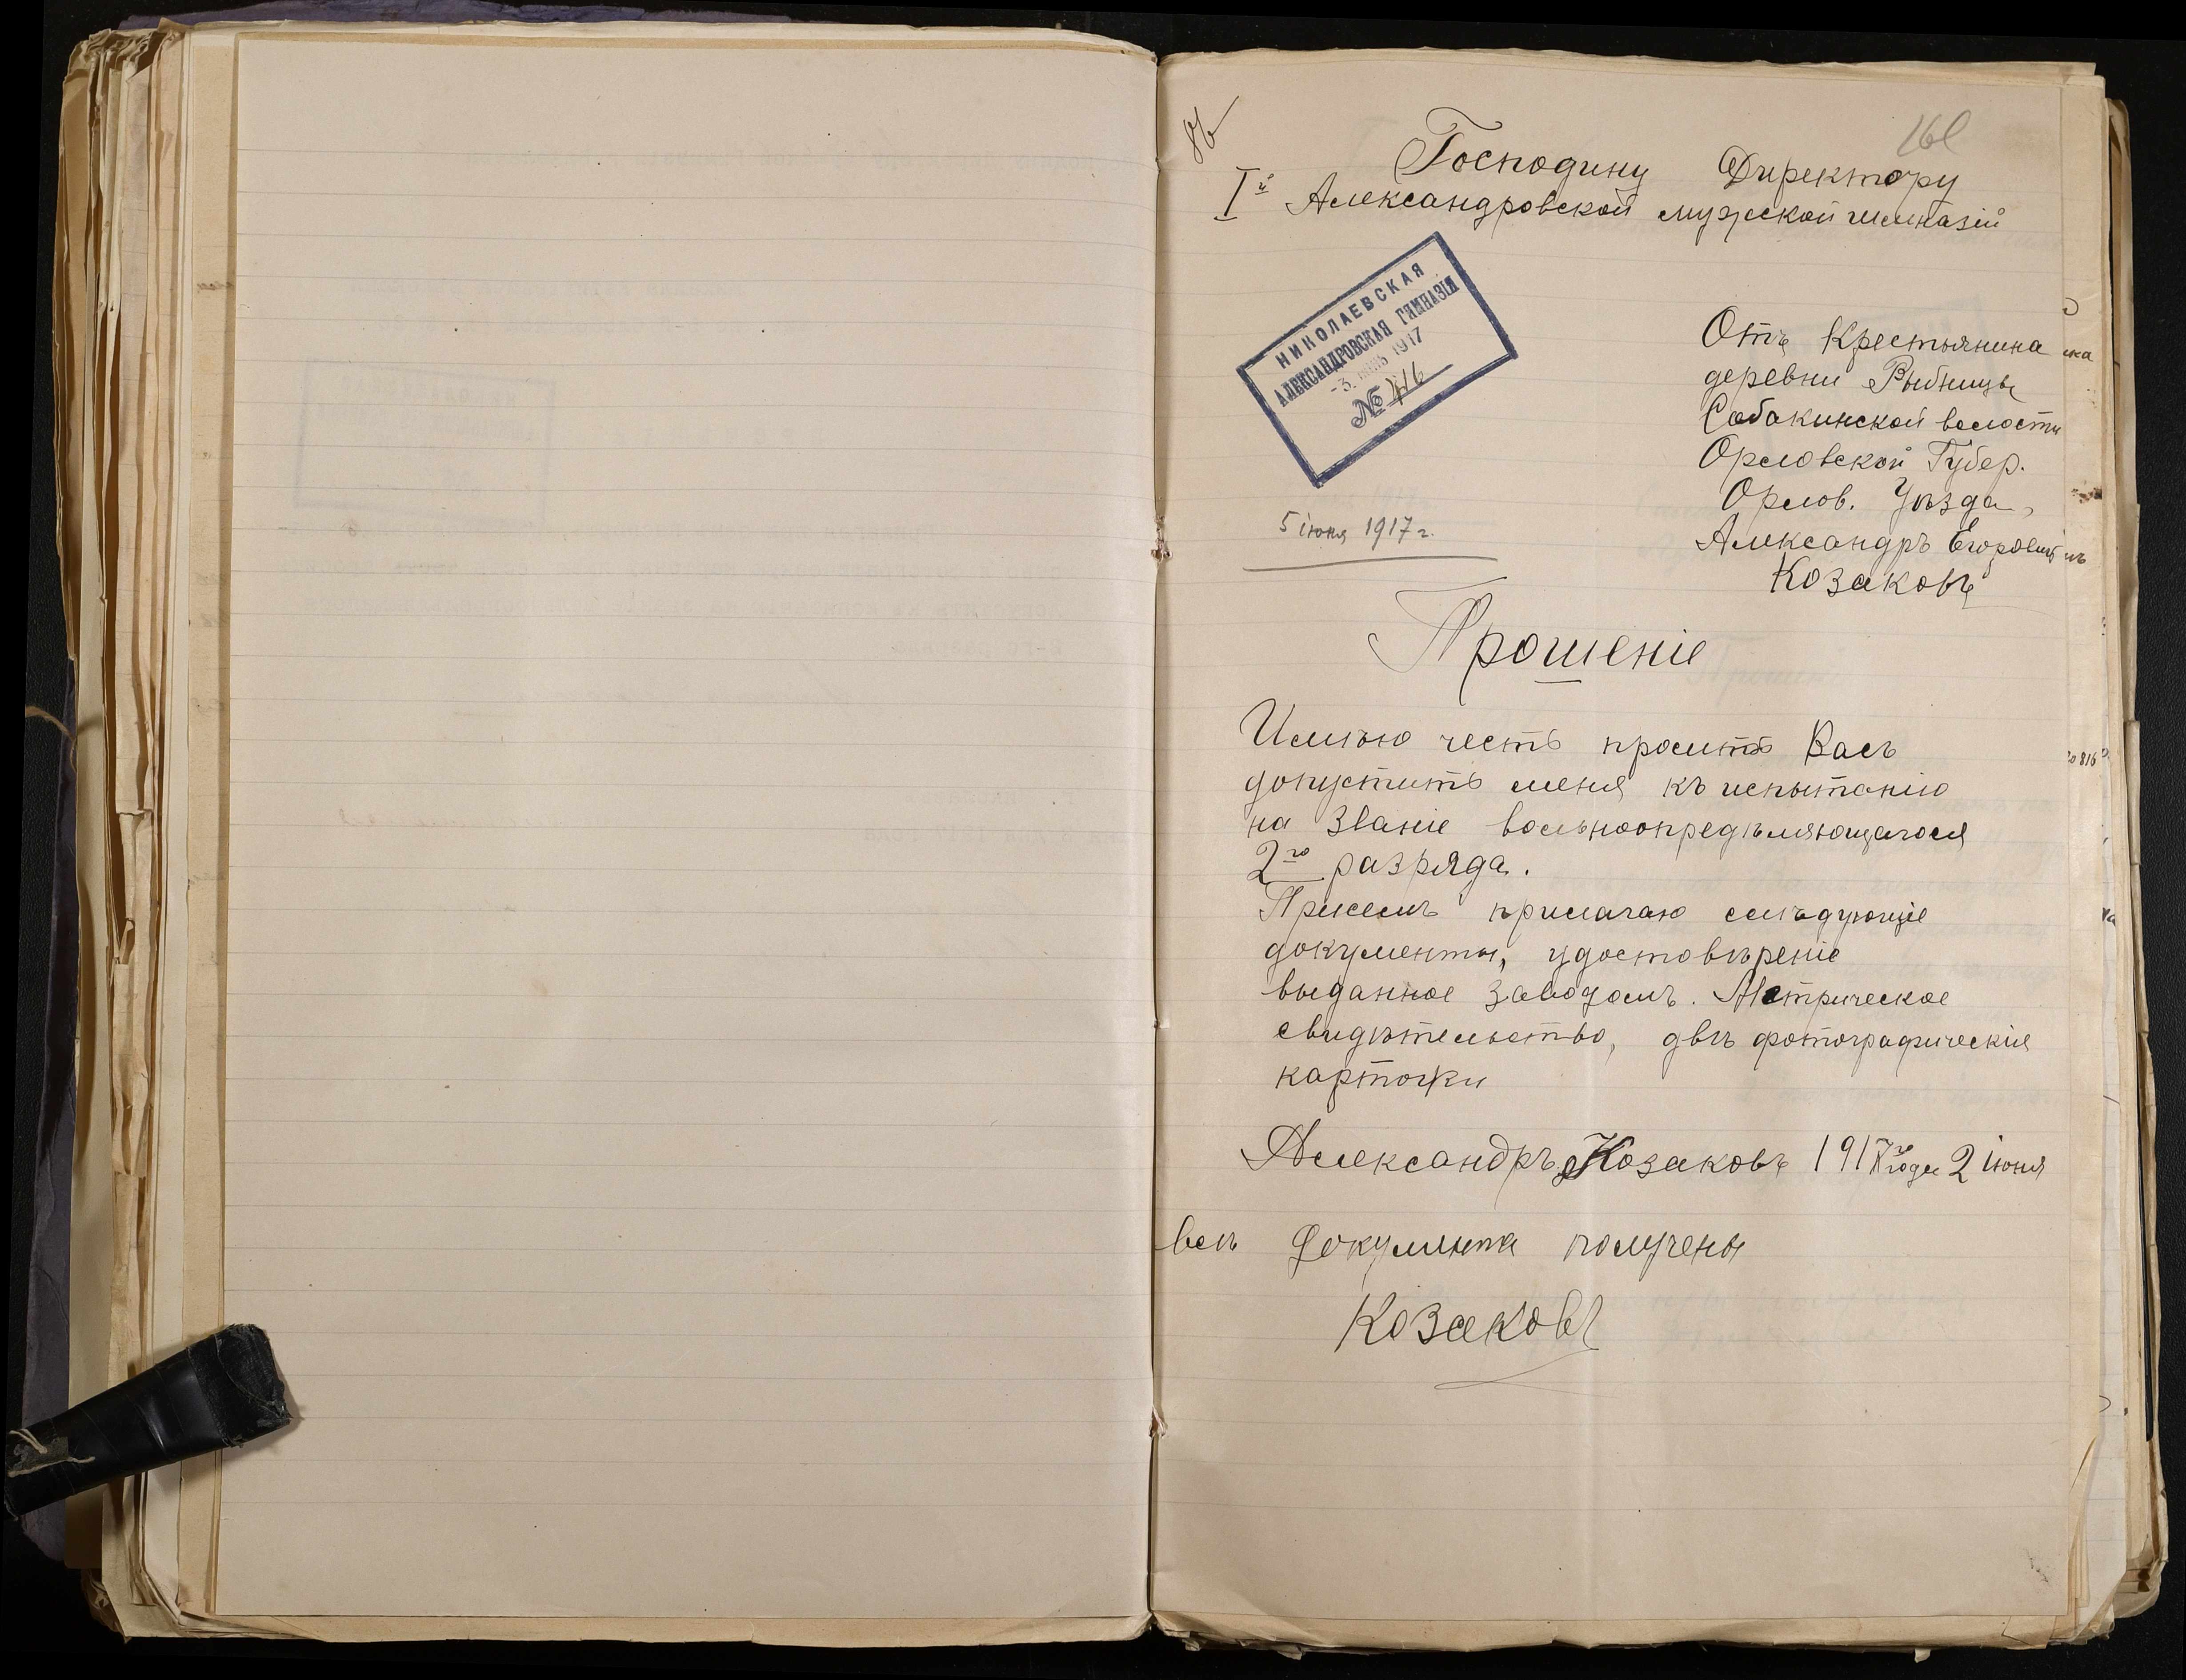 Господину Директору
Iй Александровской мужской гимназiй
НИКОЛАЕВСКАЯ
АЛЕКСАНДРОВСКАЯ ГИМНАЗIЯ
-3. 1917
№
Отъ Крестьянина
деревни Рыбницы
Собакинской волости
Орловской Губер.
Орлов. Уѣзда,
5 iюня 1917 г.
Александръ Егоровичъ
Козаковъ
Прошенiе
Имѣю честь просить Васъ
допустить меня къ испытанiю
на Званiе вольноопредѣляющагося
2го разряда.
Присемъ прилагаю слѣдующiе
документы, удостовѣренiе
выданное заводомъ. Метрическое
свидѣтельство, двѣ фотографическiя
карточки
Александръ Козаковъ 1917го года 2 Iюня
всѣ документа получены
Козаковъ